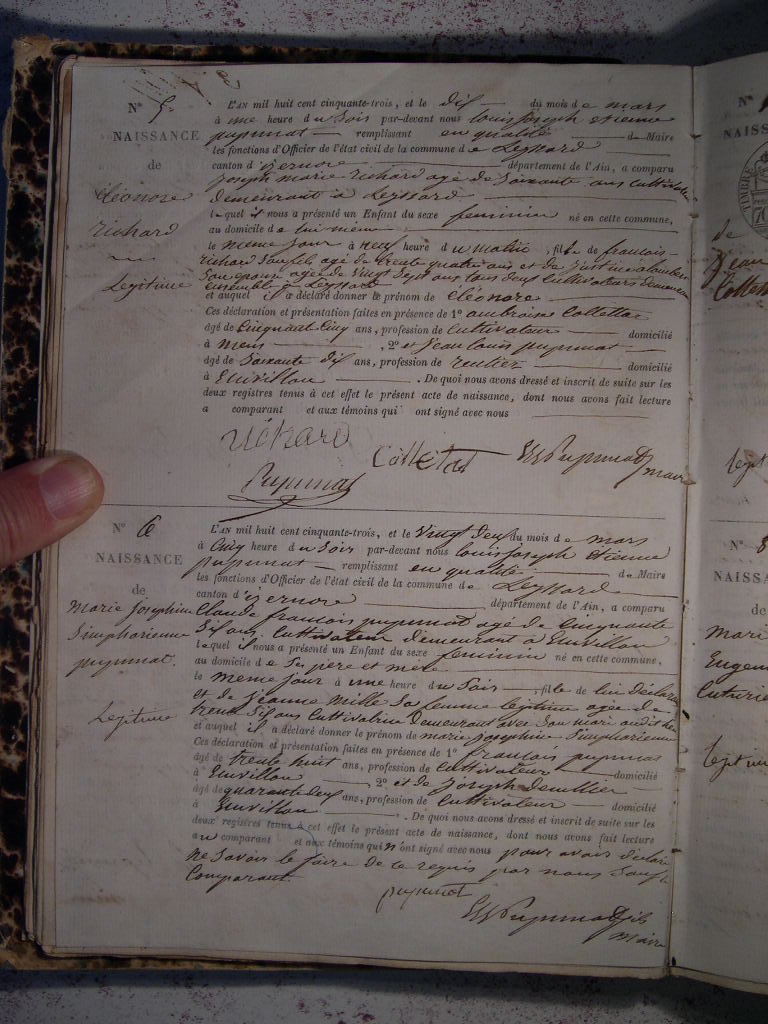 N° 5.
NAISSANCE
de
éléonore
richard
Legitime
L'AN mil huit cent cinquante-trois, et le dix du mois de mars
à une heure du soir par-devant nous louis joseph etienne
pupunat remplissant en qualité de Maire
les fonctions d'Officier de l'état civil de la commune de Leyssard
canton d'izernore département de l'Ain, a comparu
joseph marie richard agé de soixante ans cultivateur
demeurant à Leyssard
lequel il nous a présenté un Enfant du sexe feminin né en cette commune,
au domicile de lui meme
le meme jour à neuf heure du matin, fille de francois
richard son fils agé de trente quatre ans et de justine
son epouse agée de vingt sept ans tous deux cultivateurs demeurant
ensemble à Leyssard
et auquel il a déclaré donner le prénom de éléonore
Ces déclaration et présentation faites en présence de 1° ambroise Collettaz
âgé de cinquante cinq ans, profession de cultivateur domicilié
à mens, 2° et jean louis pupunat
âgé de soixante dix ans, profession de rentier domicilié
à Euvillon. De quoi nous avons dressé et inscrit de suite sur les
deux registres tenus à cet effet le présent acte de naissance, dont nous avons fait lecture
a comparant et aux témoins qui ont signé avec nous
richard
Colletaz Pupunat maire
Pupunat
N° 6
NAISSANCE
de
marie josephine
simpharienne
pupunat.
Legitime
L'AN mil huit cent cinquante-trois, et le vingt deux du mois de mars
à cinq heure du soir par-devant nous louis joseph etienne
pupunat remplissant en qualité de Maire
les fonctions d'Officier de l'état civil de la commune de Leyssard
canton d'izernore département de l'Ain, a comparu
Claude francois pupunat agé de cinquante
six ans cultivateur demeurant à Euvillon
lequel il nous a présenté un Enfant du sexe feminin né en cette commune,
au domicile de ses pere et mere
le meme jour à une heure du soir, fille de lui déclarant
et de jeanne mille sa femme legitime agée de
trente six ans cultivatrice demeurant avec son mari audit lieu
et auquel il a déclaré donner le prénom de marie josephine simpharienne
Ces déclaration et présentation faites en présence de 1° francois pupunat
âgé de trente huit ans, profession de cultivateur domicilié
à Euvillon 2° et de joseph
âgé de quarante deux ans, profession de cultivateur domicilié
à Euvillon. De quoi nous avons dressé et inscrit de suite sur les
deux registres tenus à cet effet le présent acte de naissance, dont nous avons fait lecture
au comparant et aux témoins qui n'ont signé avec nous pour avoir déclaré
ne savoir le faire de ce requis par nous sauf le
Comparant.
pupunat
Pupunat fils
maire
N°
NAISS
TIMBRE
de
jean
Collet
legit
N° 8
NAISSA
de
Mari
Eugen
legitim